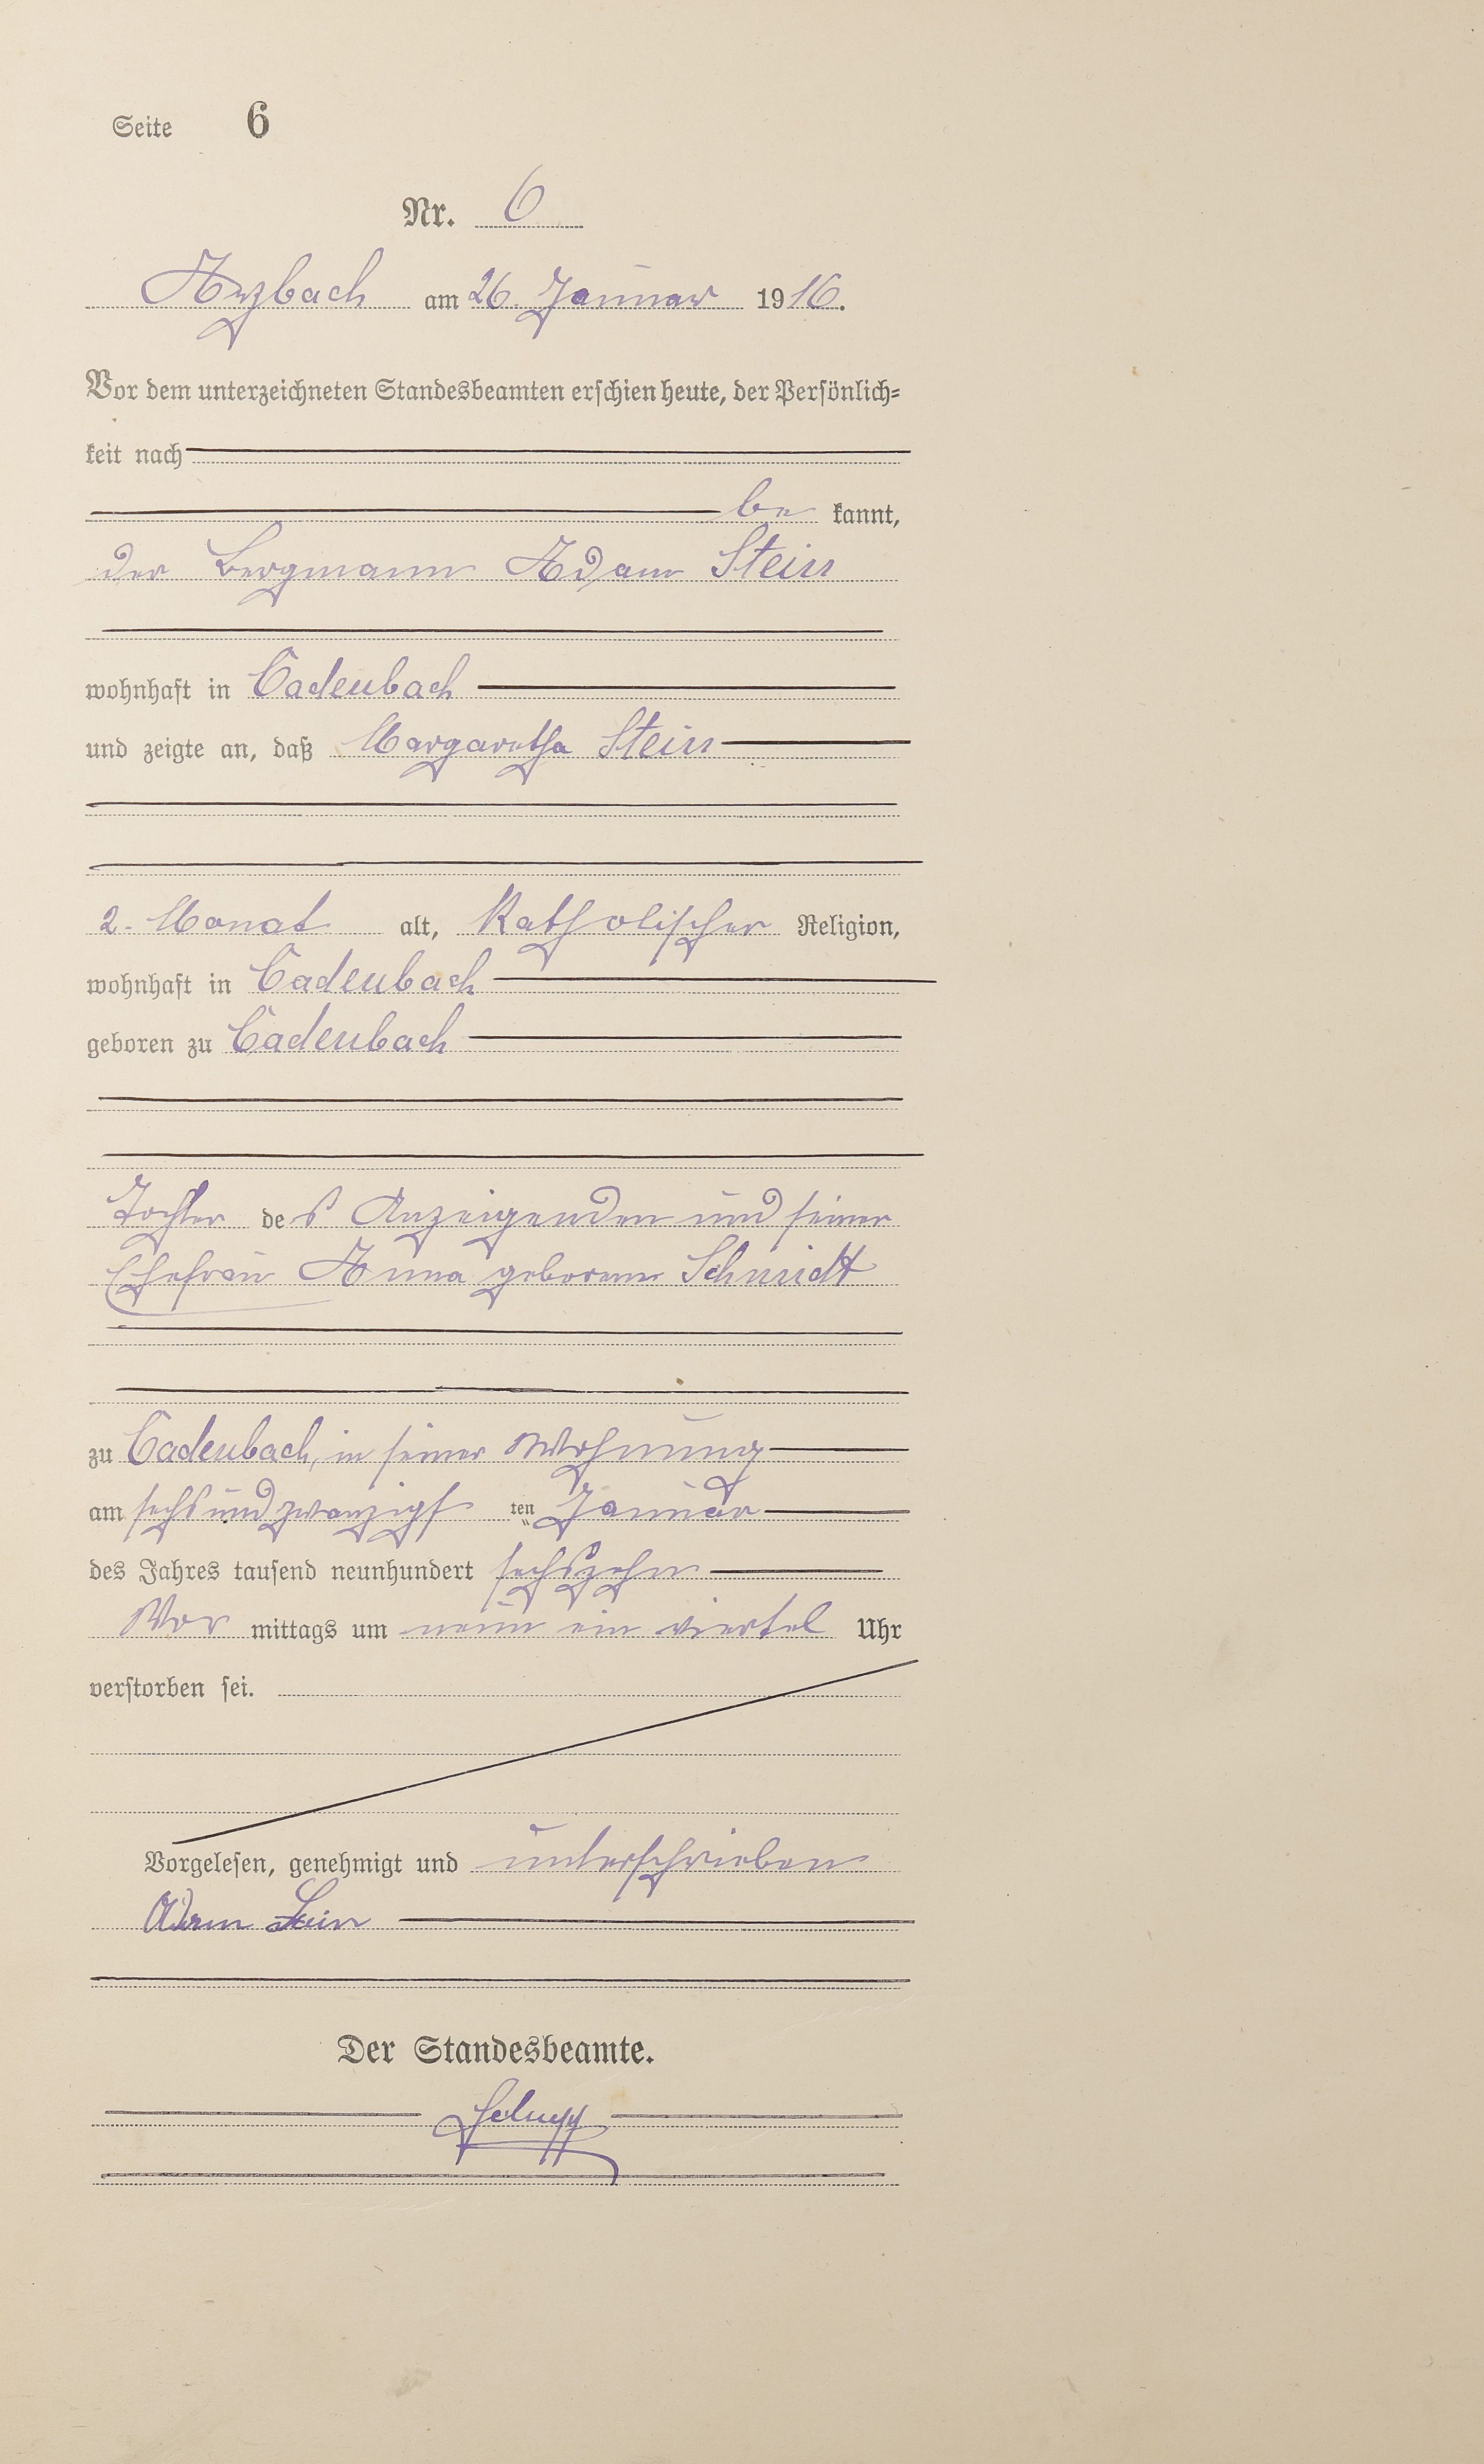 Seite 6
Nr. 6
Arzbach am 26. Januar 1916.
Vor dem unterzeichneten Standesbeamten erschien heute, der Persönlich-
keit nach
be kannt,
der Bergmann Adam Stein
wohnhaft in Cadenbach
und zeigte an, daß Margaretha Stein
2. Monat alt, Katholischer Religion,
wohnhaft in Cadenbach
geboren zu Cadenbach
Tochter des Anzeigenden und seiner
Ehefrau Anna geborene Schmidt
zu Cadenbach, in seiner Wohnung
am sechsundzwanzigsten Januar
des Jahres tausend neunhundert sechszehn
Vor mittags um neun ein viertel Uhr
verstorben sei.
Vorgelesen, genehmigt und unterschrieben
Adam Stein
Der Standesbeamte.